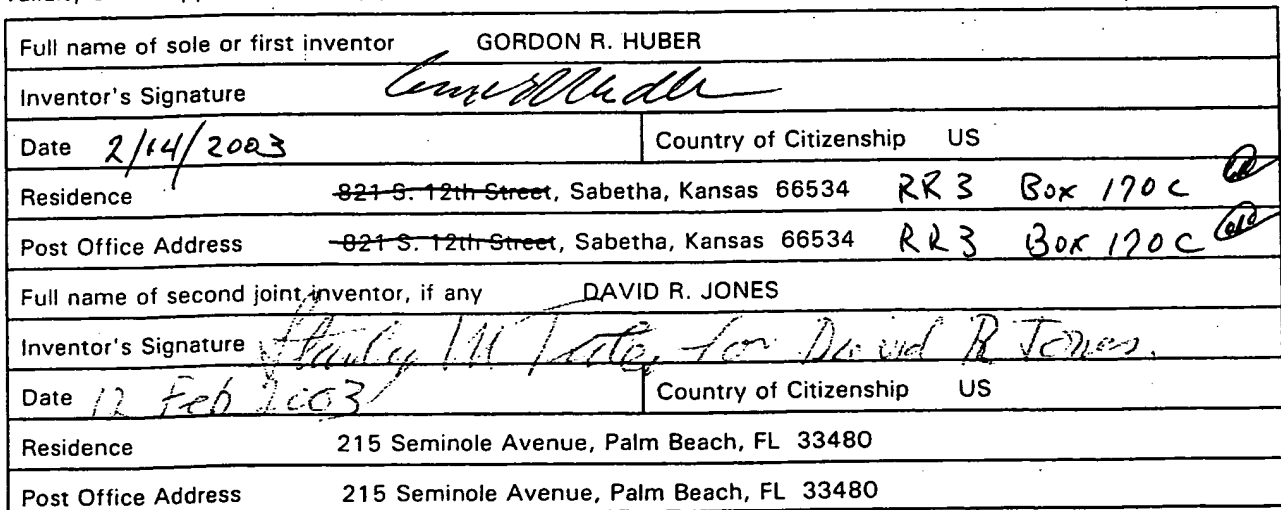 Full name of sole or first inventor GORDON R. HUBER
Inventor's Signature
Date 2/14/2003 Country of Citizenship US
Residence 821 S. 12th Street, Sabetha, Kansas 66534 RR 3 Box 170 C
Post Office Address 821 S. 12th Street, Sabetha, Kansas 66534 RR 3 Box 170 C
Full name of second joint inventor, if any DAVID R. JONES
Inventor's Signature for David R Jones.
Date 12 Feb 2003 Country of Citizenship US
Residence 215 Seminole Avenue, Palm Beach, FL 33480
Post Office Address 215 Seminole Avenue, Palm Beach, FL 33480